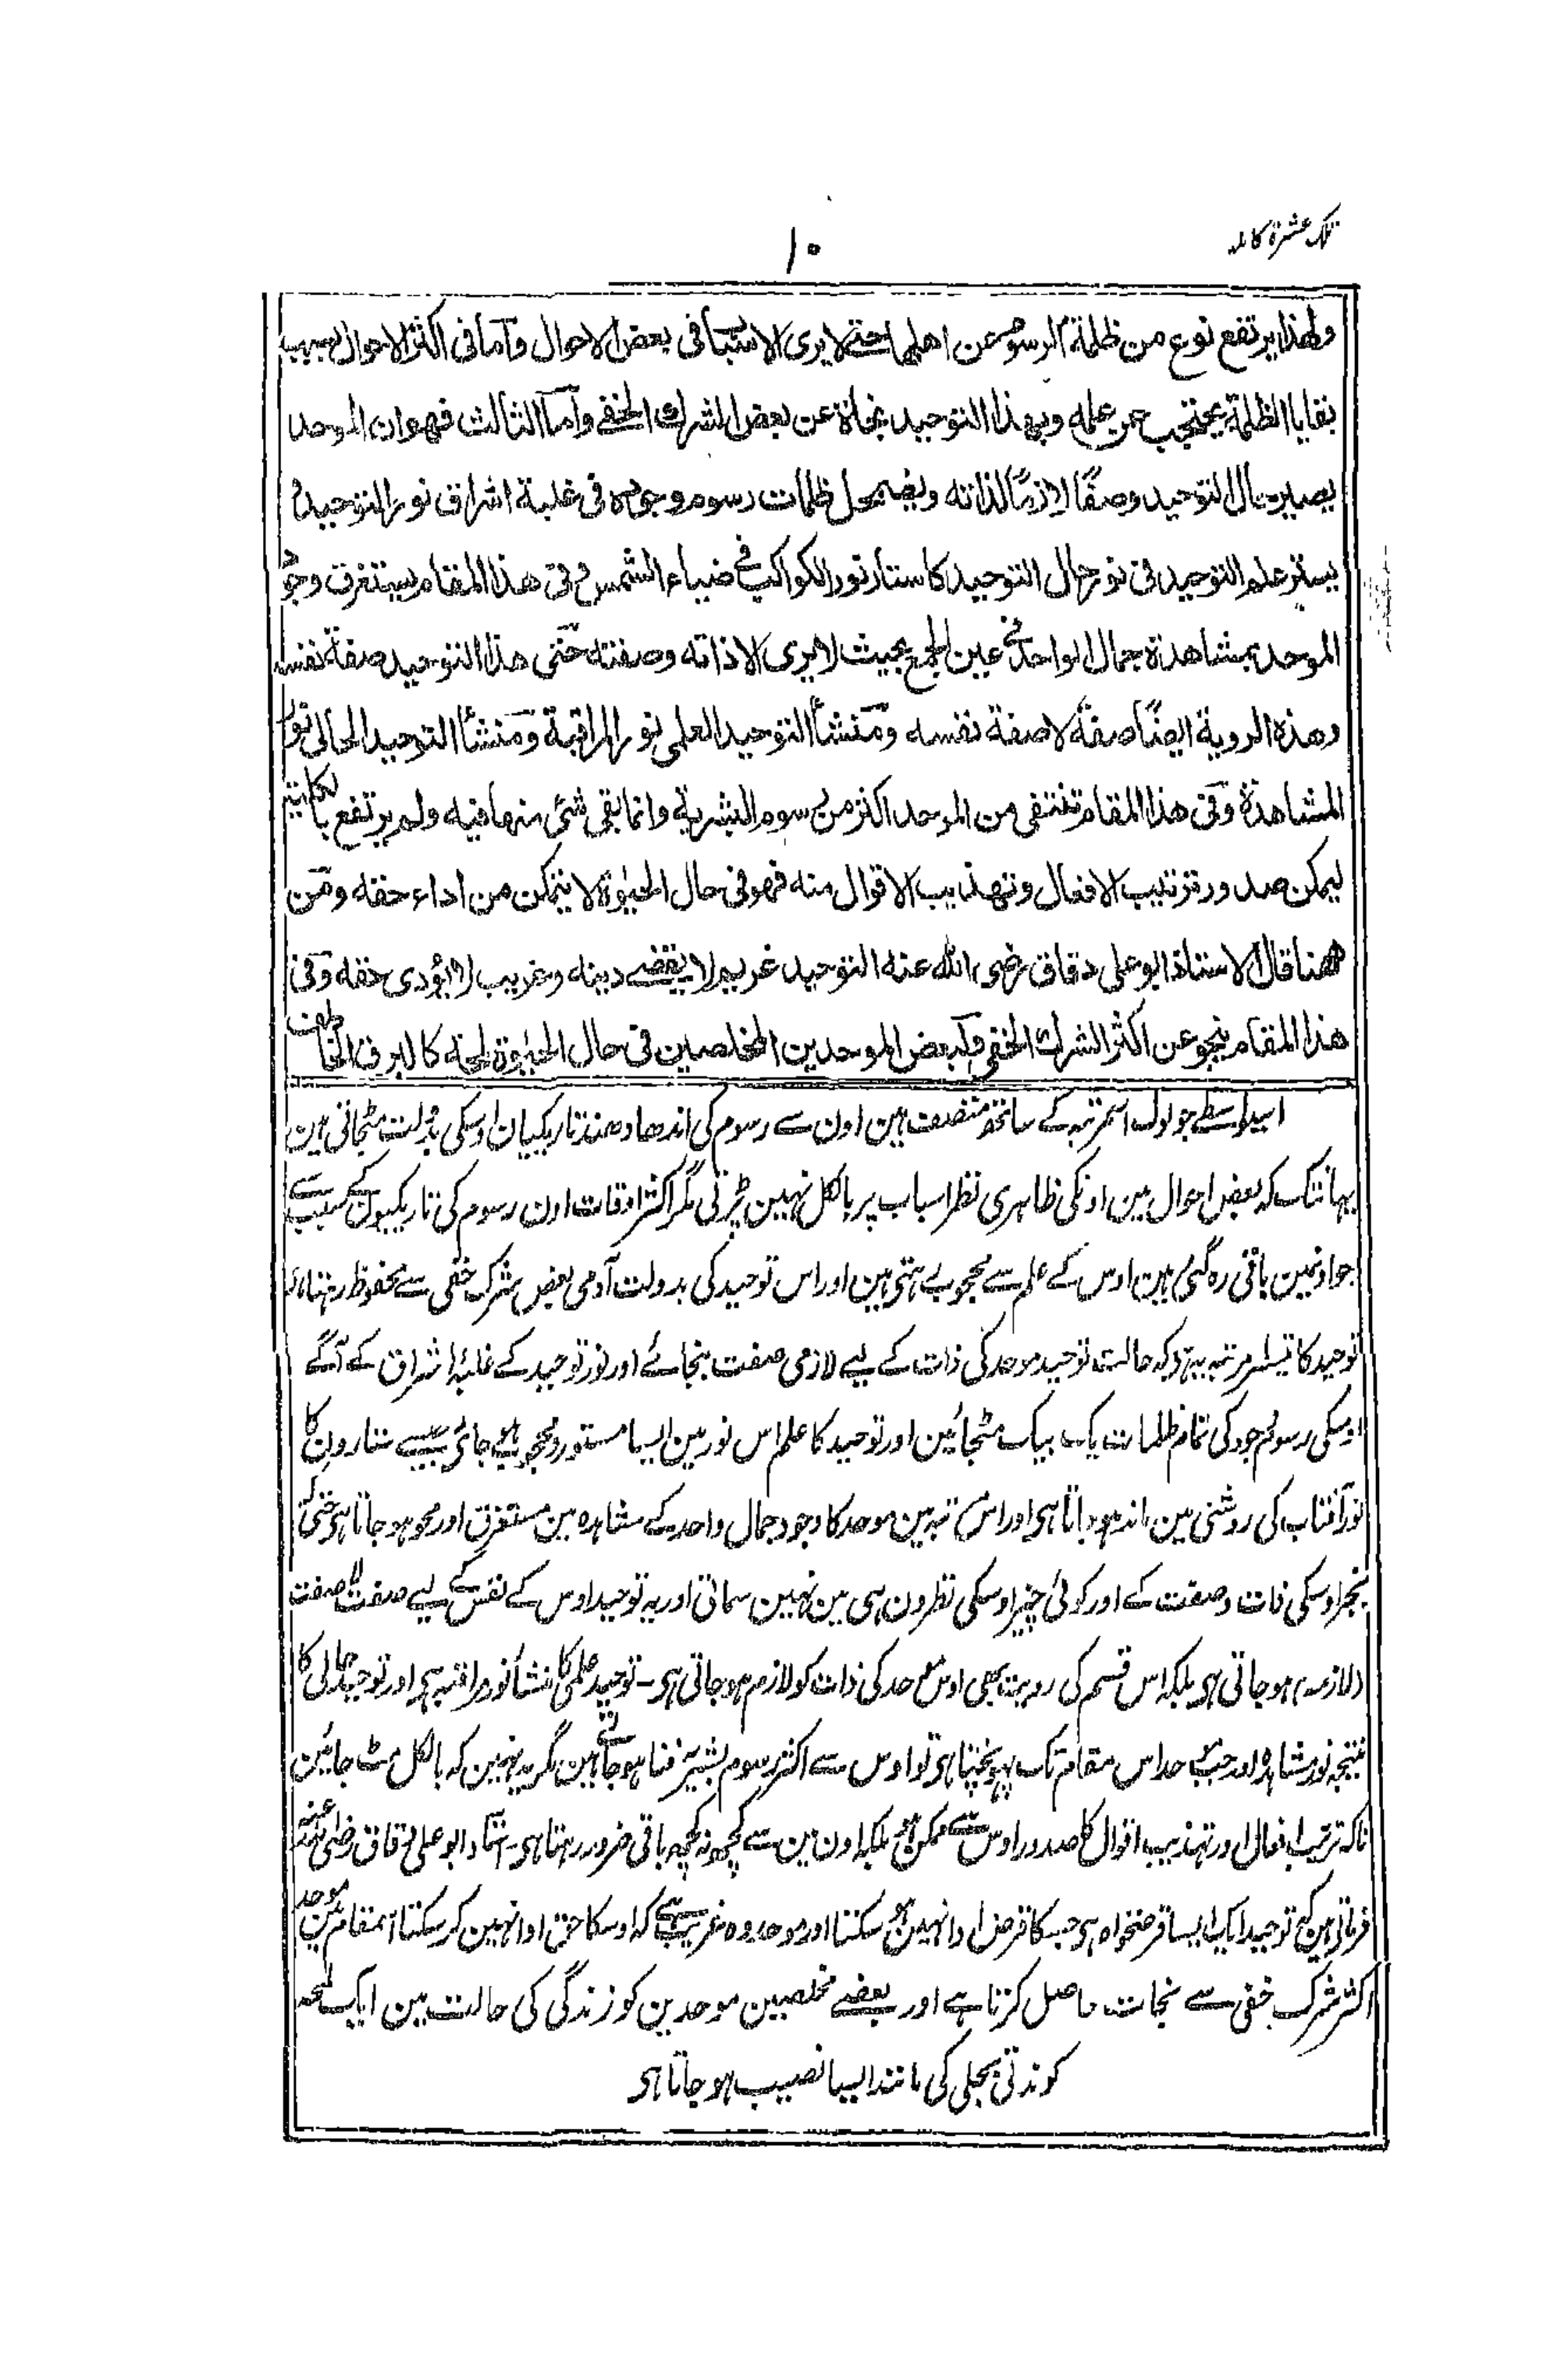 تلک عشرۃ کاملہ
۱۰
ولهذا يرتفع نوع من ظلمة الرسوم عن اهلها حتے لا يرى الاسباب فى بعض الاحوال وآما فى اكثر الاحوال بسبب
بقايا الظلمة يحتجب عن علمه وبهذا التوحيد نجاة عن بعض الشرك الخفے وآما الثالث فهو ان الموحد
يصير حال التوحيد وصفًا لازمًا لذاته ويضمحل ظلمات رسوم وجوده فى غلبة اشراق نور التوحيد و
يستتر علم التوحيد فى نور حال التوحيد كاستتار نور الكواكب فى ضياء الشمس وفى هذا المقام يستغرق وجود
الموحد بمشاهدة جمال الواحد فى عين الجمع بحيث لا يرى الا ذاته وصفته حتى هذا التوحيد صفة نفسه
وهذه الروية ايضًا صفة لا صفة نفسه ومنشأ التوحيد العلمى نور المراقبة ومنشأ التوحيد الحالى نور
المشاهدة وفى هذا المقام تنتفى من الموحد اكثر من رسوم البشرية وانما بقى شئ منها فيه ولم يرتفع بالكلية
ليمكن صدور ترتيب الافعال وتهذيب الاقوال منه فهو فى حال الحيٰوة لا يتمكن من اداء حقه ومن
ههنا قال الاستاذ ابو على دقاق رضى الله عنه التوحيد غريم لا يقضے دينه وغريب لا يؤدى حقه وفى
هذا المقام ينجو عن اكثر الشرك الخفى ولبعض الموحدين المخلصين فى حال الحيٰوة لمحة كالبرق الخاطف
اسیواسطے جو لوگ اسمرتبہ کے ساتھ متصف ہین اون سے رسوم کی اندھا دھند تاریکیان اوسکی بدولت مٹجاتی ہین
یہانتک کہ بعض احوال مین اونکی ظاہری نظر اسباب پر بالکل نہین پڑتی مگر اکثر اوقات اون رسوم کی تاریکیون کے سبب سے
جو اونمین باقی رہ گئی ہین اوس کے علم سے محجوب رہتی ہین اور اس توحید کی بدولت آدمی بعض شرک خفی سے محفوظ رہتا ہی
توحید کا تیسرا مرتبہ یہ ہے کہ حالت توحید موحد کی ذات کے لیے لازمی صفت بنجائے اور نور توحید کے غلبۂ اشراق کے آگے
اوسکی رسوم وجود کی تمام ظلمات یک بیک مٹجائین اور توحید کا علم اس نور مین ایسا مستور و محجوب ہو جائی جیسے ستارون کا
نور آفتاب کی روشنی مین ماند ہوجاتا ہی اور اس مرتبہ مین موحد کا وجود جمال واحد کے مشاہدہ مین مستغرق اور محو ہو جاتا ہی حتی کہ
بجز اوسکی ذات و صفت کے اور کوئی چیز اوسکی نظرون ہی مین نہین سماتی اور یہ توحید اوس کے نفس کے لیے صفت لا صفت
(لازمہ) ہو جاتی ہی بلکہ اس قسم کی رویت بھی اوس موحد کی ذات کو لازم ہو جاتی ہی ۔ توحید علمی کا منشأ نور مراقبہ ہی اور توحید حالی کا
نتیجہ نور مشاہدہ اور جب موحد اس مقام تک پہونچتا ہی تو اوس سے اکثر رسوم بشریہ فنا ہو جاتے ہین مگر یہ نہین کہ بالکل مٹ جائین
تاکہ ترتیب افعال اور تہذیب اقوال کا صدور اوس سے ممکن ہو بلکہ اون مین سے کچھ نہ کچھ باقی ضرور رہتا ہی ۔ استاد ابو علی دقاق رضی اللہ عنہ
فرماتی ہین کہ توحید ایک ایسا قرضخواہ ہی جس کا قرض ادا نہین ہو سکتا اور موحد وہ غریب ہے کہ اوسکا حق ادا نہین کر سکتا اسمقام مین موحد
اکثر شرک خفی سے نجات حاصل کرتا ہے اور بعضے مخلصین موحدین کو زندگی کی حالت مین ایک لمحہ
کوندتی بجلی کی مانند ایسا نصیب ہو جاتا ہی